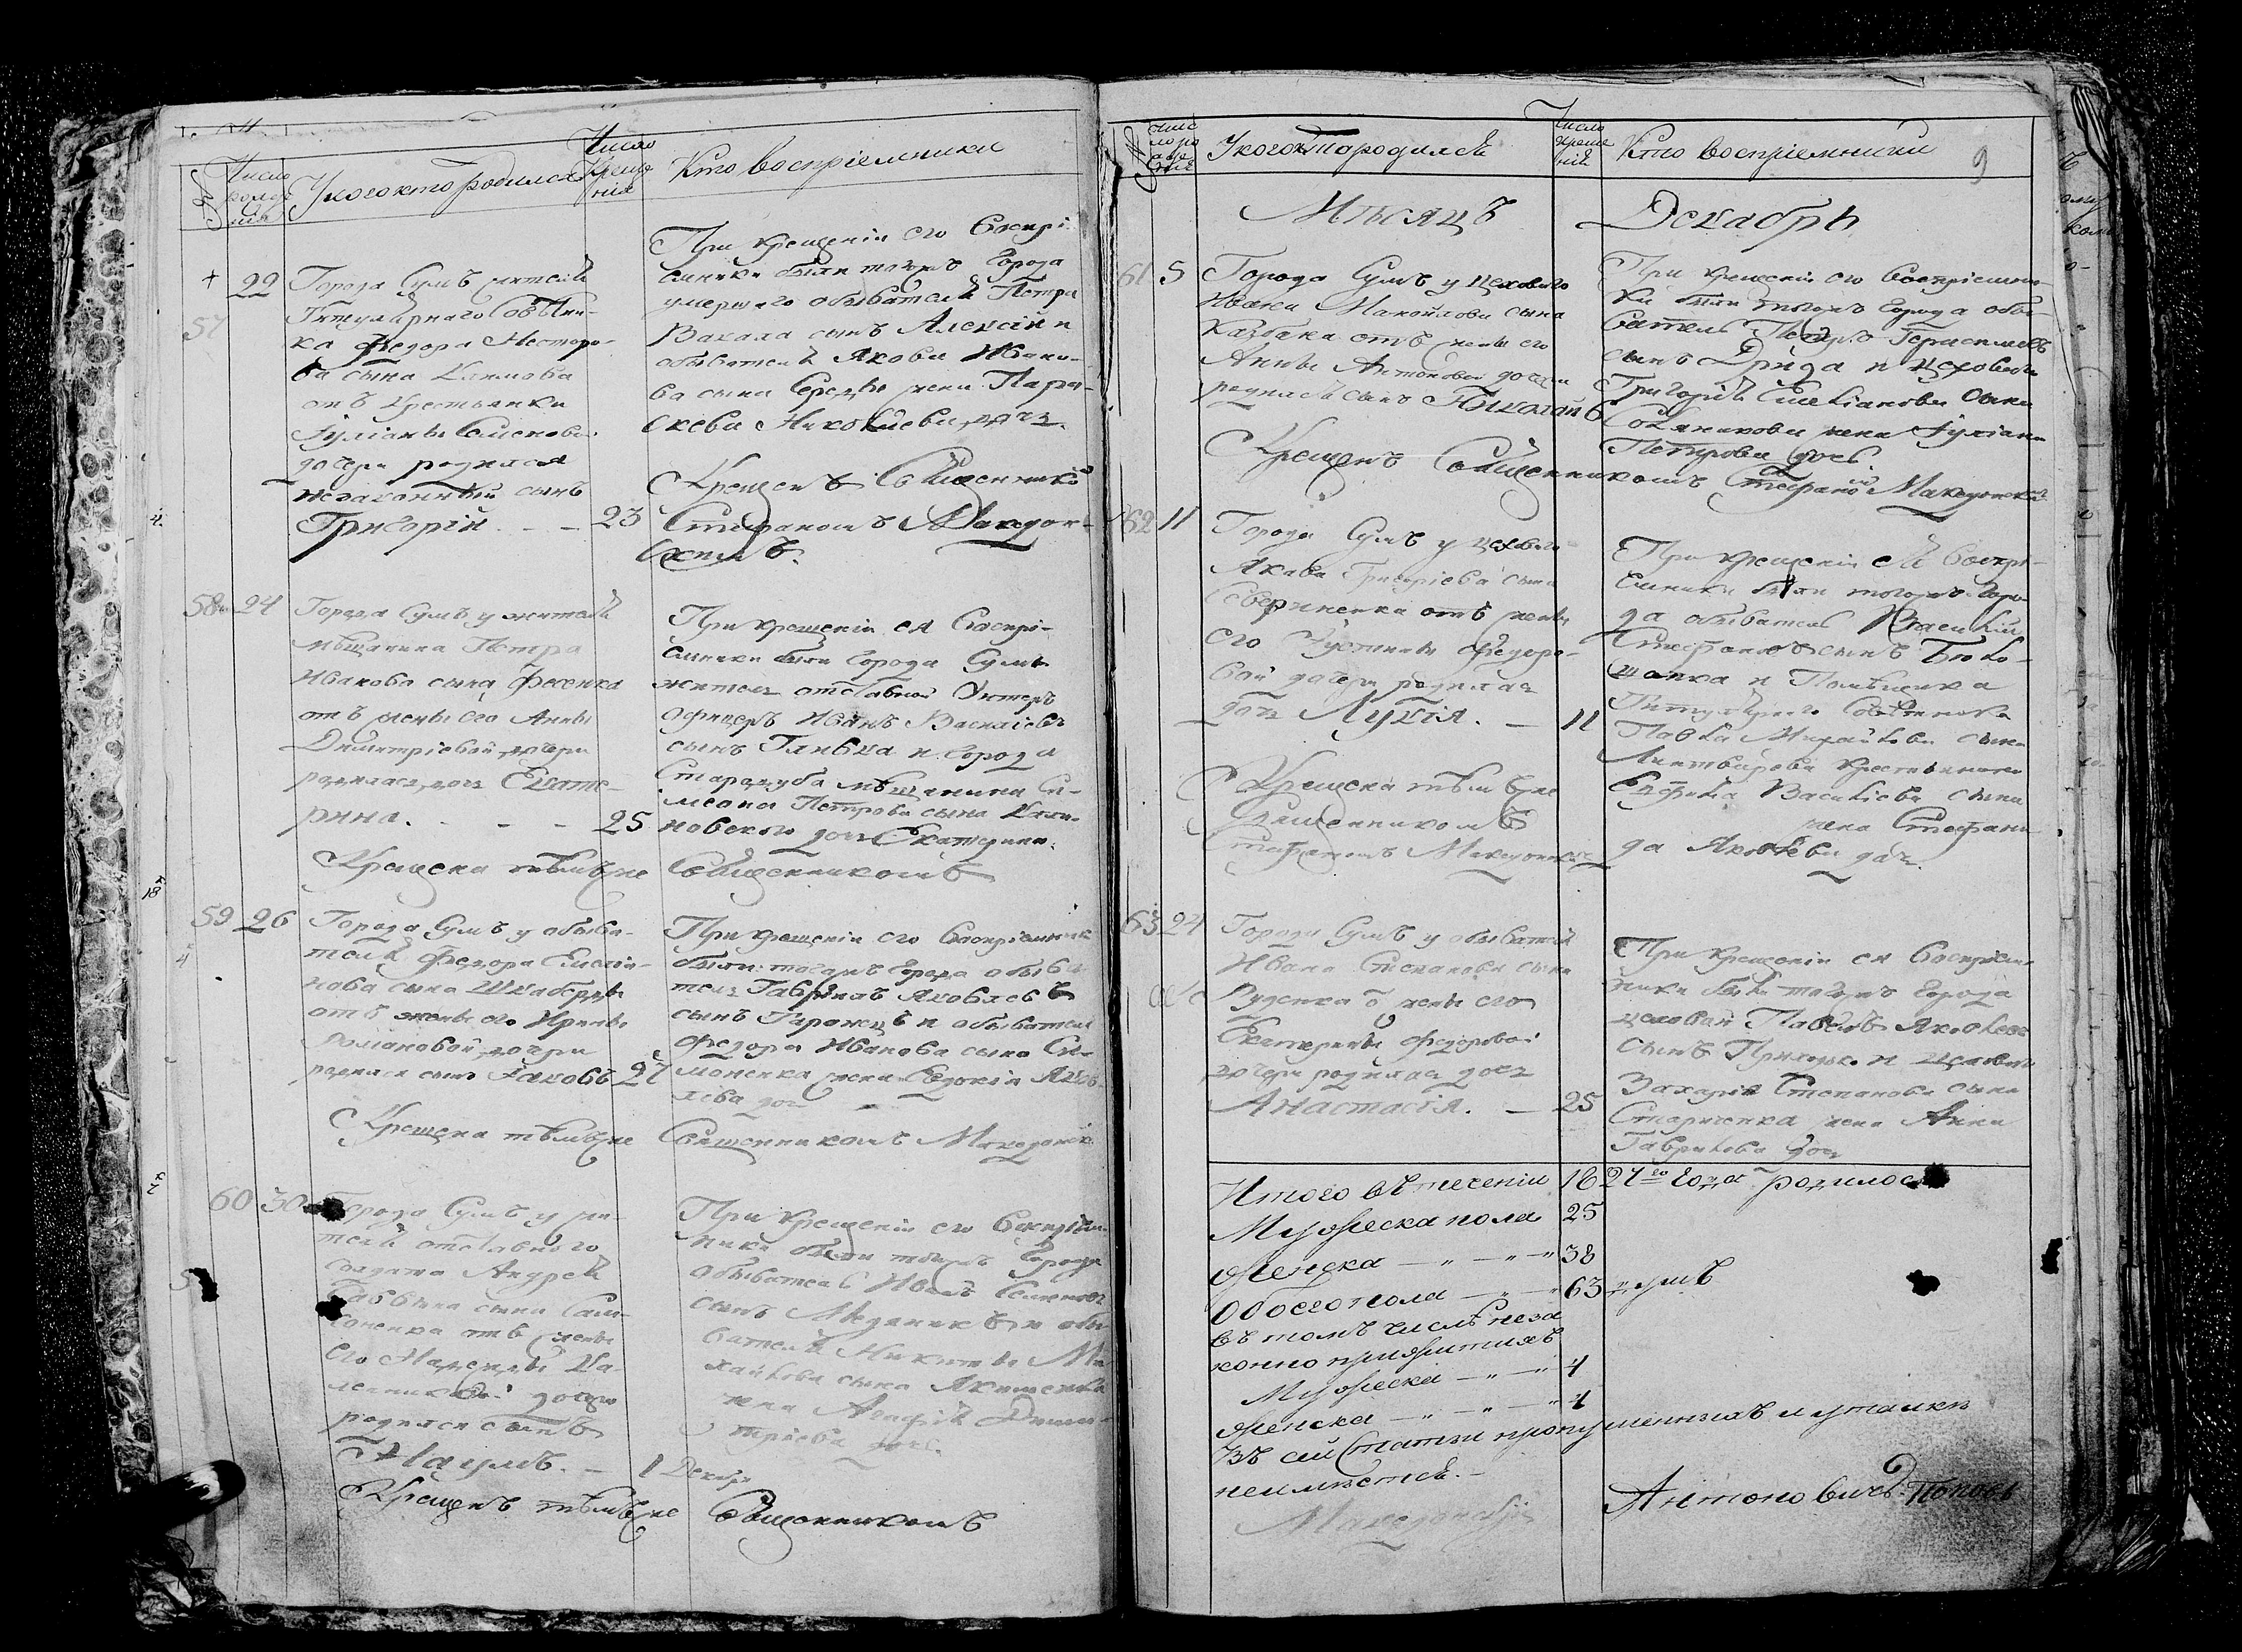 Число рожденія
У кого кто родился
Число крещенія
Кто воспріемники
57
22
Города Сумъ жителя
Титулярнаго Совѣтни-
ка Федора Несторо-
ва сына Климова
отъ крестьянки
Іуліаны Семеновой
дочери родился
незаконный сынъ
Григорій
23
При крещеніи его Воспрі-
емники были тогожъ Города
умершаго обывателя Петра
Вакала сынъ Алексій и
обывателя Якова Ивано-
ва сына Середы жена Пара-
скева Николаева дочь.
Крещенъ Священником
Стефаномъ Македон-
скимъ.
58
24
Города Сумъ у жителя
мѣщанина Петра
Иванова сына Фесенка
отъ жены его Анны
Димитріевой дочери
родилась дочь Екате-
рина.
25
При крещеніи ея Воспрі-
емники были Города Сумъ
житель отставной Унтеръ
офицеръ Иванъ Василіевъ
сынъ и города
Стародуба мѣщанина Си-
меона Петрова сына Кали-
новского дочь Екатерина.
Крещена тѣмъ же Священникомъ
59
26
Города Сумъ у обыва-
теля Федора Емелія-
нова сына
отъ жены его Ирины
Романовой дочери
родился сынъ Іаковъ
27
При крещеніи его Воспріемник
были тогожъ Города обыва
тель Гавріилъ Яковлевъ
сынъ и обывателя
Федора Иванова сына Си-
моненка жена Евдокія Яков
лева дочь
Крещена тѣмъ же Священникомъ Македонск
60
30
Города Сумъ у жи-
теля отставного
солдата Андрея
сына
отъ жены
его
дочери
родился сынъ
Наумъ.
1 Декабр
При крещеніи его Воспріем
ники были тогожъ Города
обыватель Иванъ Семеновъ
сынъ Мѣдяникъ и обы
вателя Никиты Ми
хайлова сына Якименка
жена Агафія Дими-
тріева дочь.
Крещенъ тѣмъ же Священникомъ
9
У кого кто родился
Число крещенія
Кто воспріемники
Мѣсяцъ Декабрь
61
5
Города Сумъ у цехового
Ивана Мануйлова сына
отъ жены его
Анны Антоновой дочери
родился сынъ Николай
6
При крещеніи его Воспріемни-
ки были тогожъ Города обы-
ватель Петръ Герасимовъ
сынъ и цехового
Григорія Емеліанова сына
жена Іуліана
Петрова дочь.
Крещенъ Священникомъ Стефаном Македонским
62
11
Города Сумъ у цехового
Якова Григоріева сына
отъ жены
его Устиньи Федоро-
вой дочери родилась
дочь Лукія.
11
При крещеніи ея Воспрі-
емники были тогожъ Горо-
да обыватель Василій
Стефановъ сынъ
и Помѣщика
Титулярного Совѣтника
Павла Михайлова сына
Литварева крестьянина
Василіева сына
жена Стефани-
да Яковлева дочь.
Крещена тѣмъ же
Священникомъ
Стефаномъ Македонскимъ
63
24
Города Сумъ у обывателя
Ивана Степанова сына
Руденка о жены его
Екатерины Федоровой
дочери родилась дочь
Анастасія.
25
При крещеніи ея Воспріем-
ники были тогожъ Города
цеховой Павелъ Яковлевъ
сынъ Приходько и цехового
Захарія Степанова сына
Старченка жена Анна
Гаврилова дочь
Итого въ теченіи 1827го года родилось
Мужеска пола 25
Женска 38
Обоего пола 63 душъ
въ томъ числѣ неза
конно прижитыхъ
Мужеска 4
Женска 4
Въ сей статьи пропущенныхъ и утайки
неимѣется.
Македонскій
Антоновичъ Поповъ